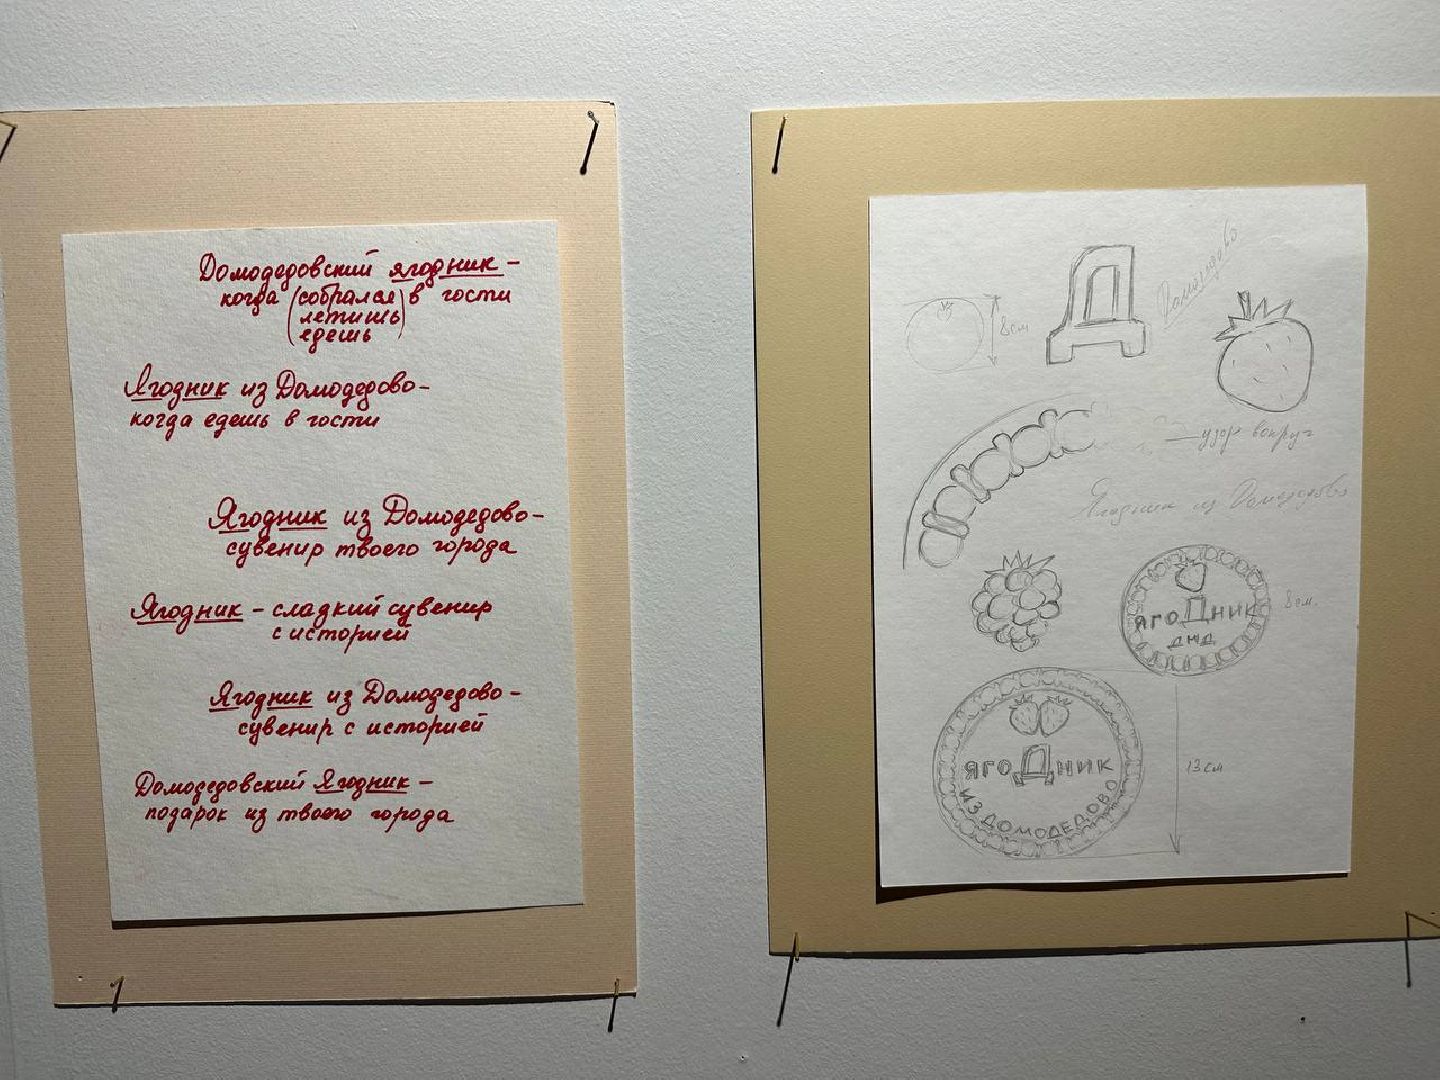 Домодедовский ягодник -
когда (собрался) в гости
летишь
едешь
Ягодник из Домодедово-
когда едешь в гости
Ягодник из Домодедово-
сувенир твоего города
Ягодник - сладкий сувенир
с историей
Ягодник из Домодедово-
сувенир с историей
Домодедовский Ягодник -
подарок из твоего города
Д
Домодедово
8см
узор вокруг
Ягодник из Домодедово
ЯГОДНИК
ДМД
8см.
ЯГОДНИК
ИЗ ДОМОДЕДОВО
13см